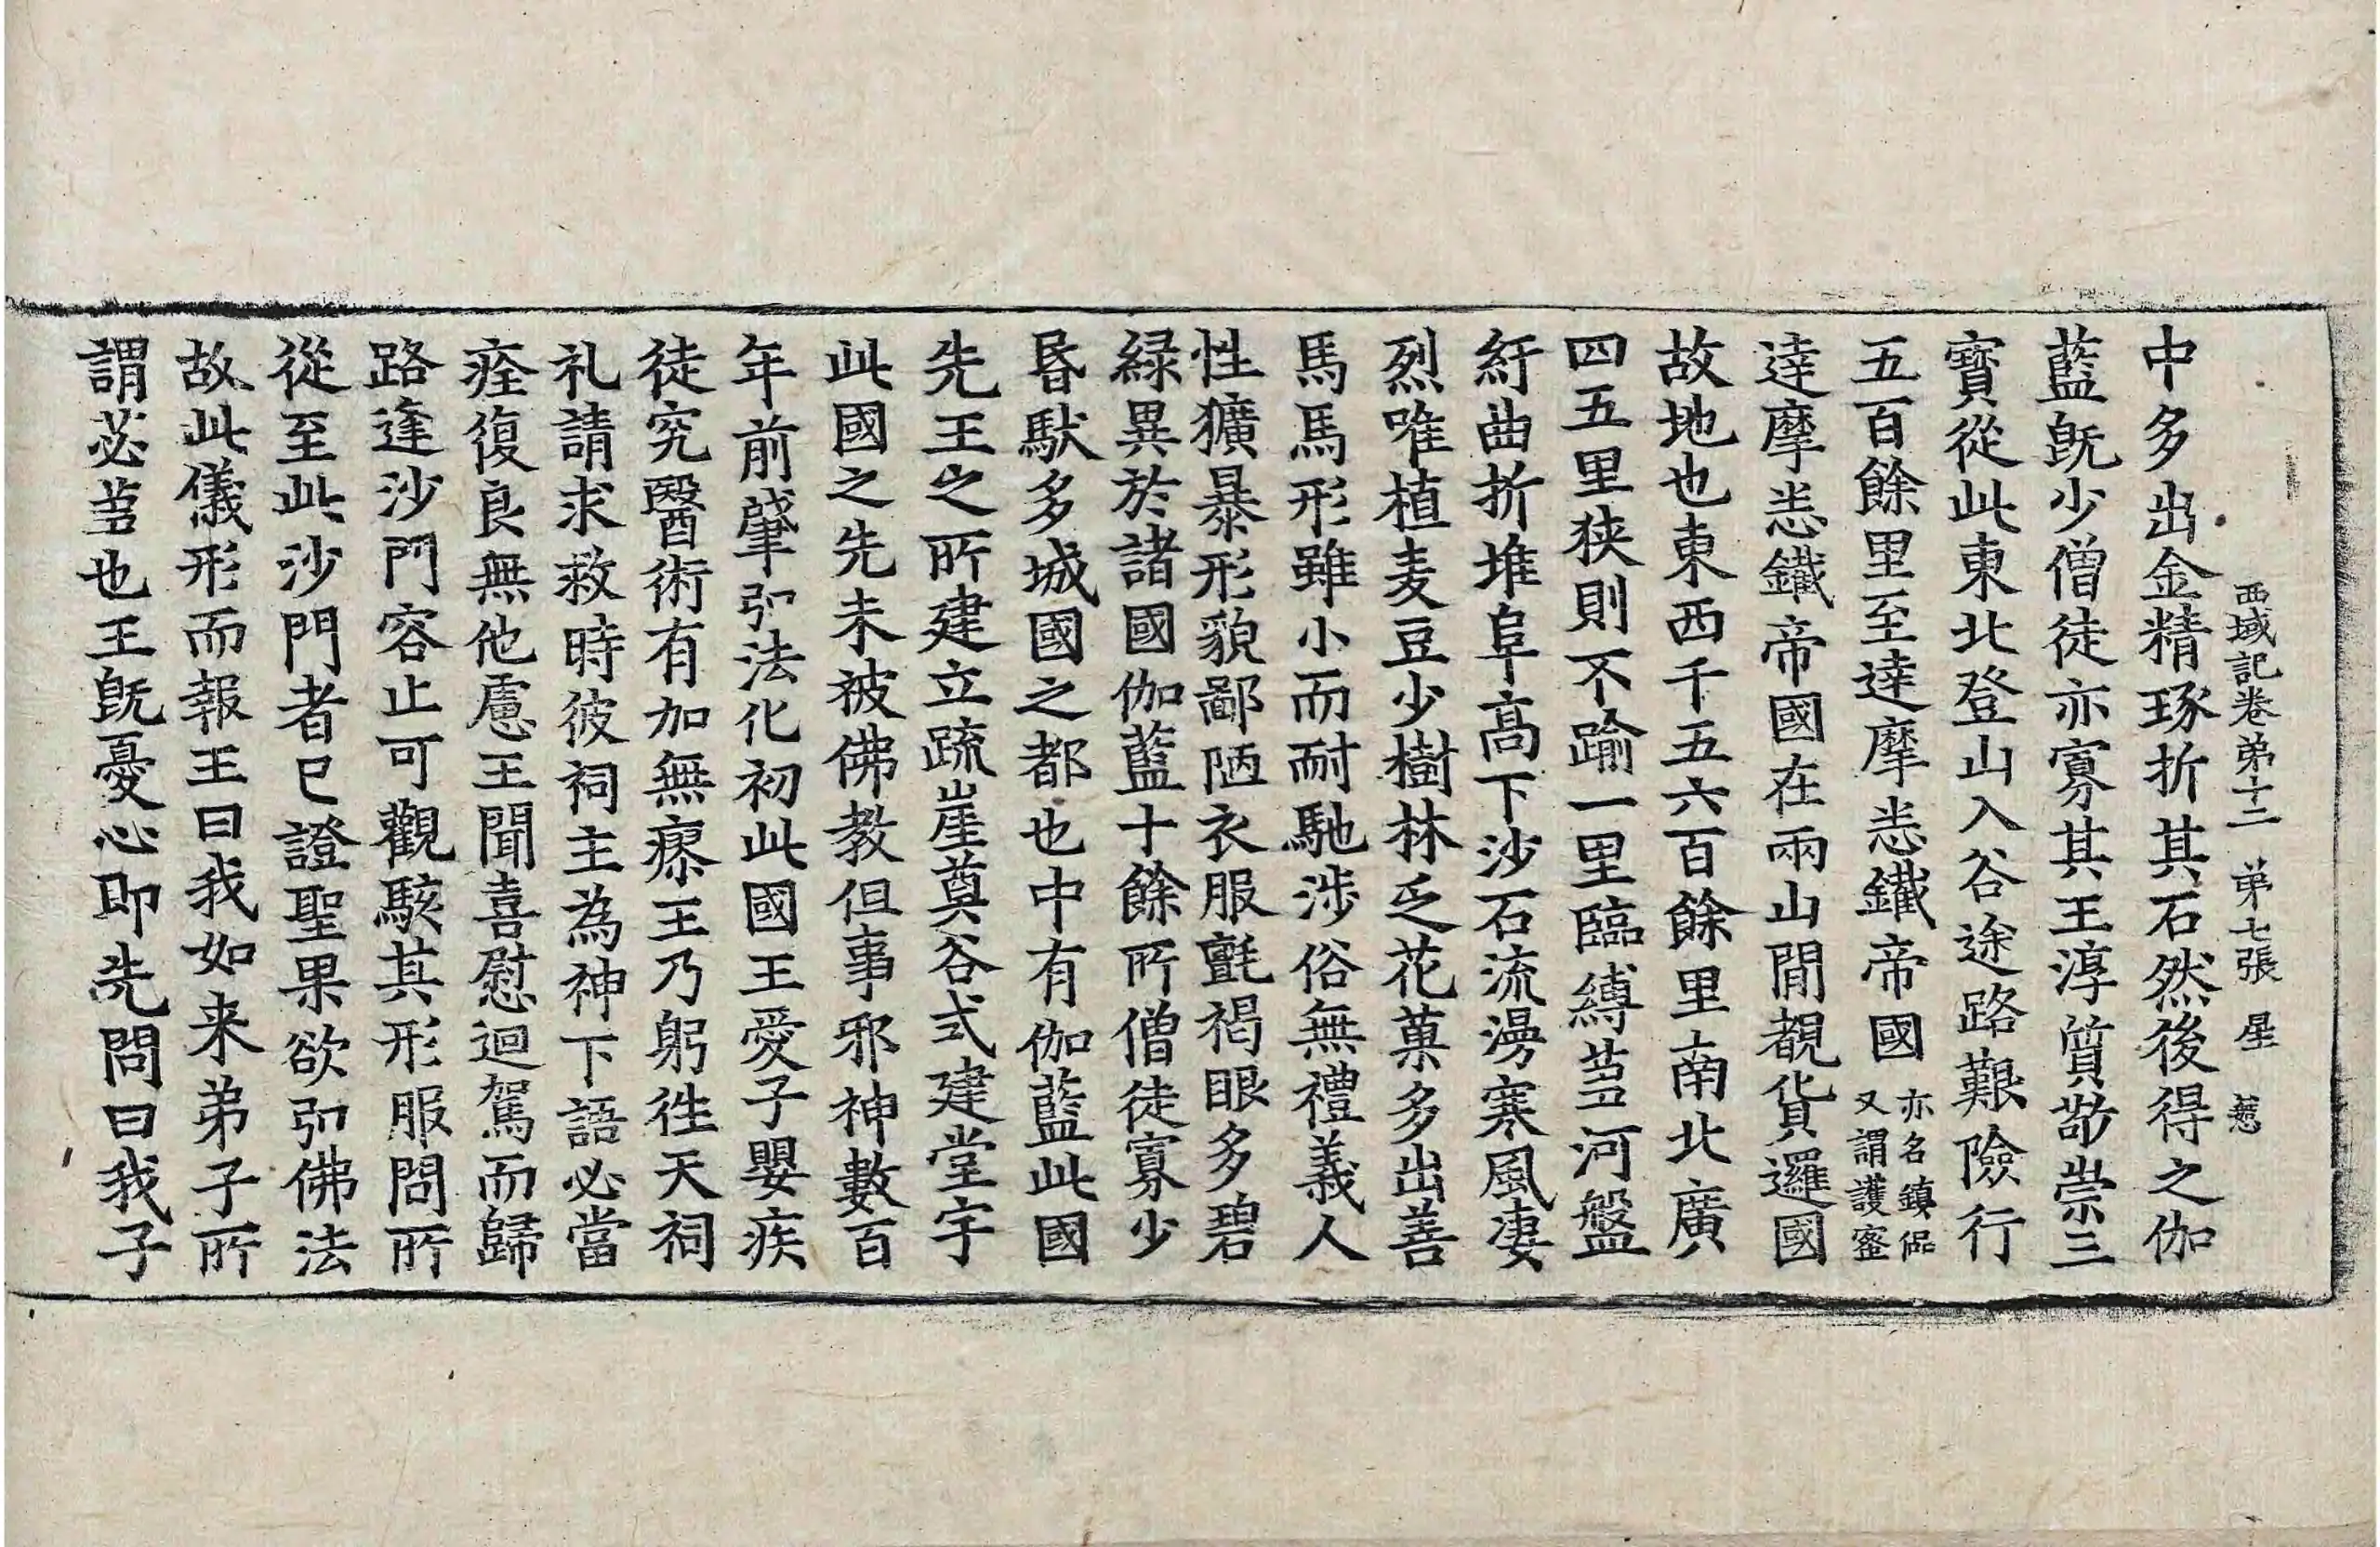 西域記卷苐十二 苐七張 星
中多出金精琢折其石然後得之伽
藍旣少僧徒亦寡其王淳質敬崇三
寶從此東北登山入谷途路艱險行
五百餘里至達摩悉鐵帝國亦名鎮偘又謂護蜜
達摩悉鐵帝國在兩山閒覩貨邏國
故地也東西千五六百餘里南北廣
四五里狹則不踰一里臨縛芻河盤
紆曲折堆阜高下沙石流漫寒風凄
烈唯植麦豆少樹林乏花菓多出善
馬馬形雖小而耐馳涉俗無禮義人
性獷暴形貌鄙陋衣服氈褐眼多碧
緑異於諸國伽藍十餘所僧徒寡少
昬馱多城國之都也中有伽藍此國
先王之所建立疏崖奠谷式建堂宇
此國之先未被佛教但事邪神數百
年前肇弘法化初此國王愛子嬰疾
徒究醫術有加無瘳王乃躬往天祠
礼請求救時彼祠主為神下語必當
痊復良無他慮王聞喜慰迴駕而歸
路逢沙門容止可觀駭其形服問所
從至此沙門者已證聖果欲弘佛法
故此儀形而報王曰我如来弟子所
謂苾芻也王旣憂心即先問曰我子